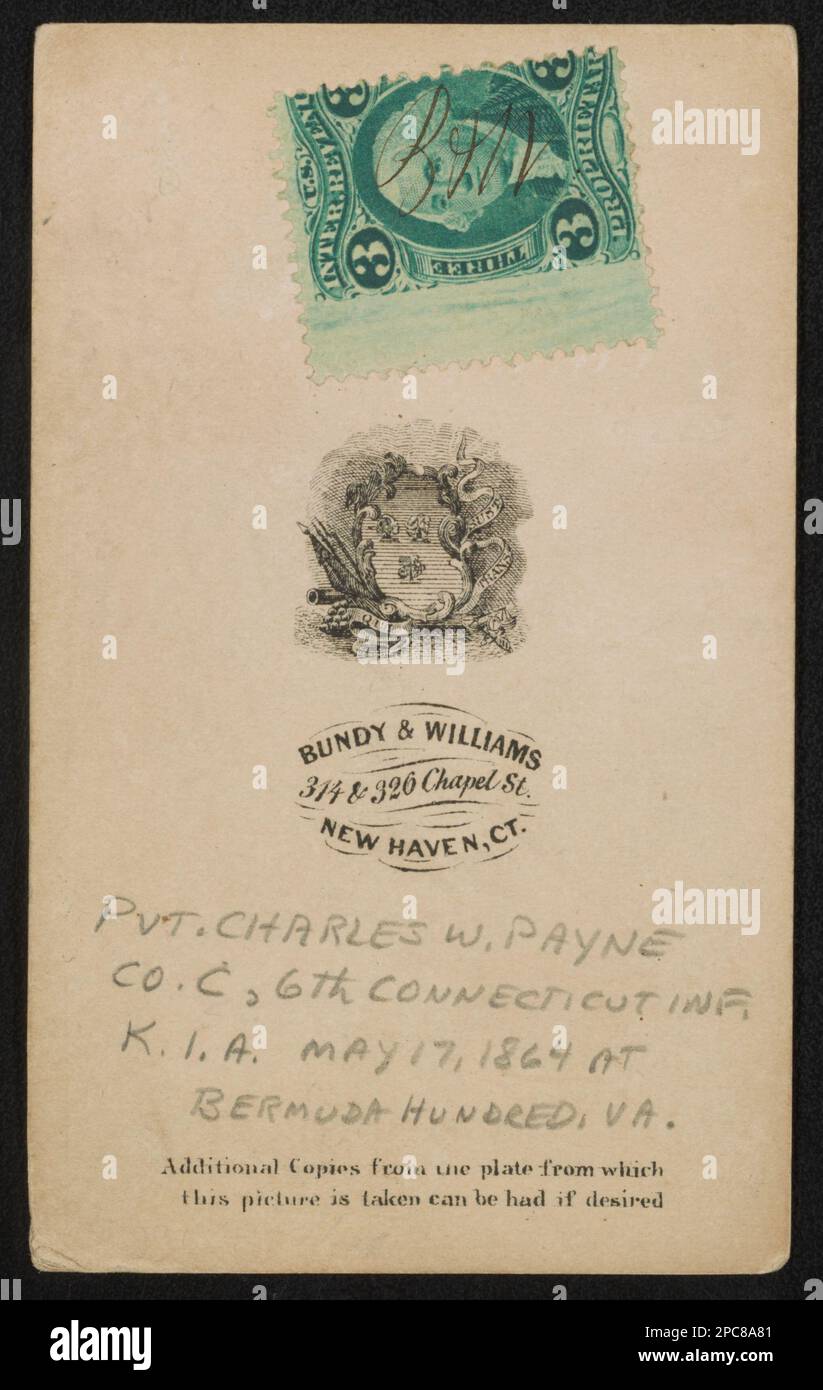 3 3
U.S. INTER. REV.
PROPRIETARY
B & W
3 THREE 3
QUI
TRANS
SUST
BUNDY & WILLIAMS
314 & 326 Chapel St.
NEW HAVEN, CT.
PVT. CHARLES W. PAYNE
CO. C, 6th CONNECTICUT INF.
K.I.A. MAY 17, 1864 AT
BERMUDA HUNDRED, VA.
Additional Copies from the plate from which
this picture is taken can be had if desired
a alamy
alamy
Image ID: 2PC8A81
www.alamy.com